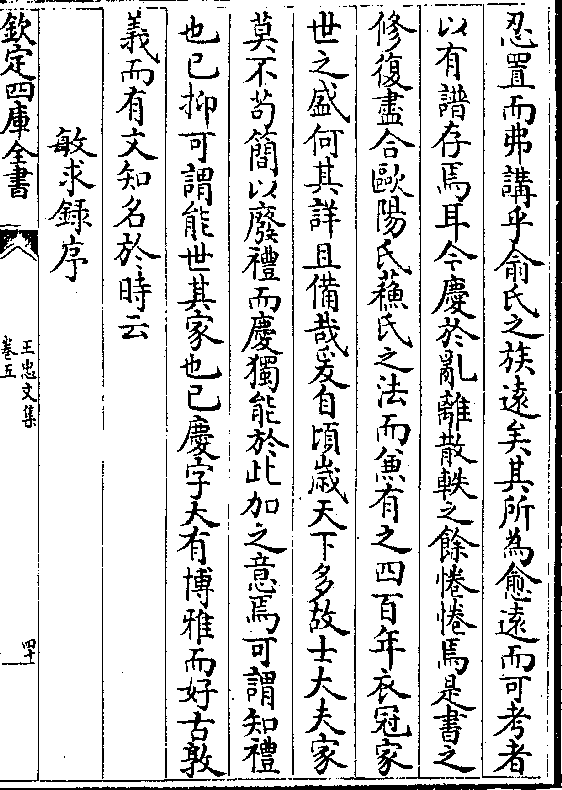 忍置而弗講乎俞氏之族逺矣其所為愈逺而可考者
以有譜存焉耳今慶於亂離散軼之餘惓惓焉是書之
修復盡合歐陽氏蘓氏之法而兼有之四百年衣冠家
世之盛何其詳且備哉爰自頃嵗天下多故士大夫家
莫不茍簡以廢禮而慶獨能於此加之意焉可謂知禮
也已抑可謂能世其家也已慶字大有博雅而好古敦
義而有文知名於時云
敏求錄序
欽定四庫全書
王忠文集
卷五
四十